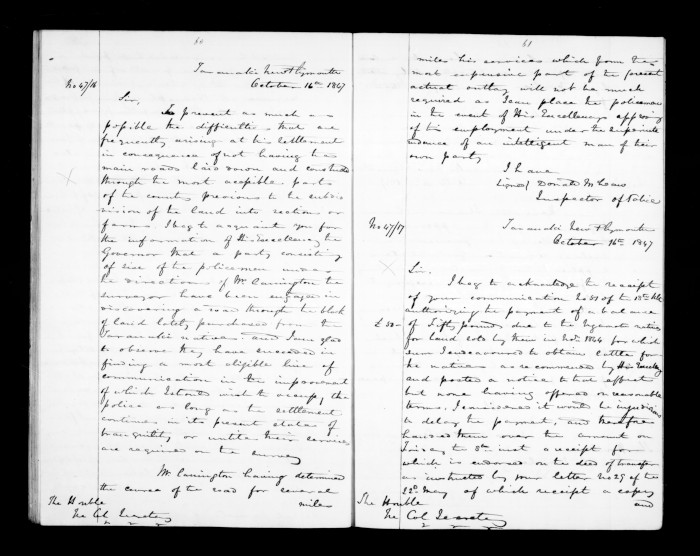 60
Taranaki New Plymouth
No 47/16
October 16th 1847
Sir,
To prevent as much as
possible the difficulties that are
frequently arising at this settlement
in consequence of not having the
main roads laid down and constructed
through the most accessible parts
of the country previous to the subdi
vision of the land into sections or
farms. I beg to acquaint you for
the information of His Excellency the
Governor that a party consisting
of six of the policemen under
the directions of Mr Carrington the
surveyor have been engaged in
discovering a road through the block
of land lately purchased from the
Taranaki natives and I am glad
to observe they have succeeded in
finding a most eligible line of
communication in the improvement
of which I should wish to occupy the
police as long as the settlement
continues in its present state of
tranquility or until their services
are required on the survey
Mr Carrington having determined
the course of the road for several
miles
The Honble
The Col Secretary
61
miles his services which form the
most expensive part of the present
actual outlay will not be much
required as I can place the policemen
in the event of His Excellency approving
of this employment under the superinten
dance of an intelligent man of their
own party
I have
Signed Donald McLean
Inspector of Police
No 47/17
Taranaki New Plymouth
October 16th 1847
Sir,
I beg to acknowledge the receipt
of your communication No 51 of the
authorizing the payment of a balance
£50-
of Fifty pounds due to the natives
for land sold by them in Novr 1844 for which
sum I endeavoured to obtain cattle for
the natives as recommended by His Excellency
and posted a notice to that effect
but none having offered on reasonable
terms, I considered it would be injudicious
to delay the payment, and therefore
handed them over the amount on
Friday the 8th inst a receipt for
which is endorsed on the deed of transfer
as instructed by your letter No 29 of the
22d May of which receipt a copy
and
The Honble
The Col Secretary